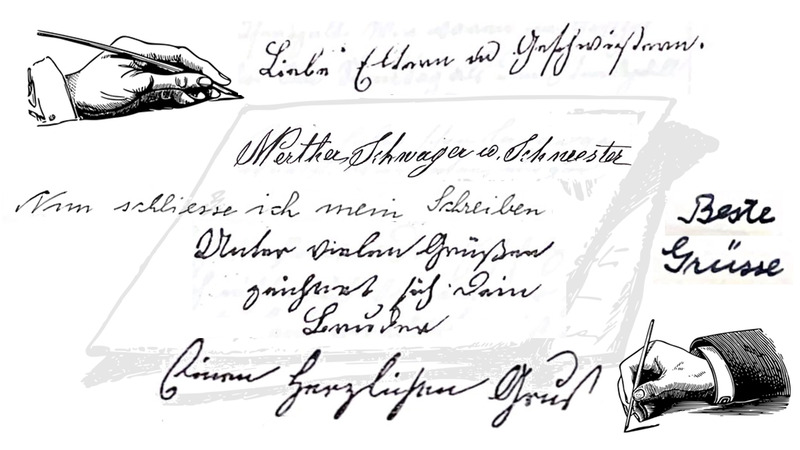 Liebe Eltern und Geschwistern.
Werther Schwager u. Schwester
Nun schliesse ich mein Schreiben
Beste
Grüsse
Unter vielen Grüßen
zeichnet sich Dein
Bruder
Einen herzlichen Gruß